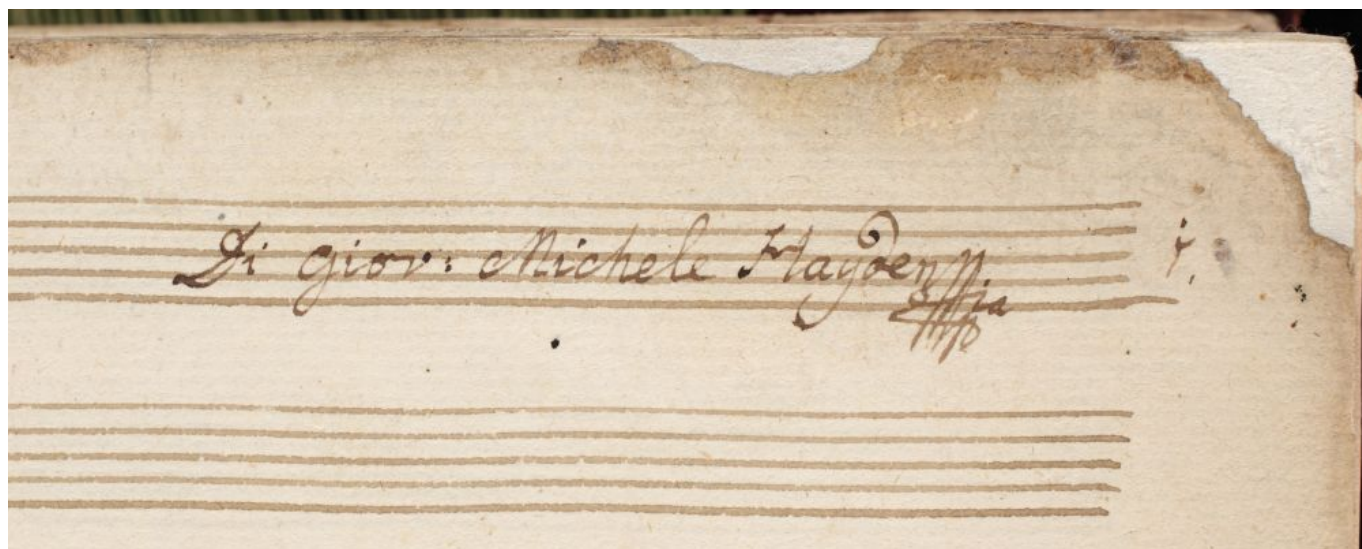 Di Giov: Michele Hayden 1.